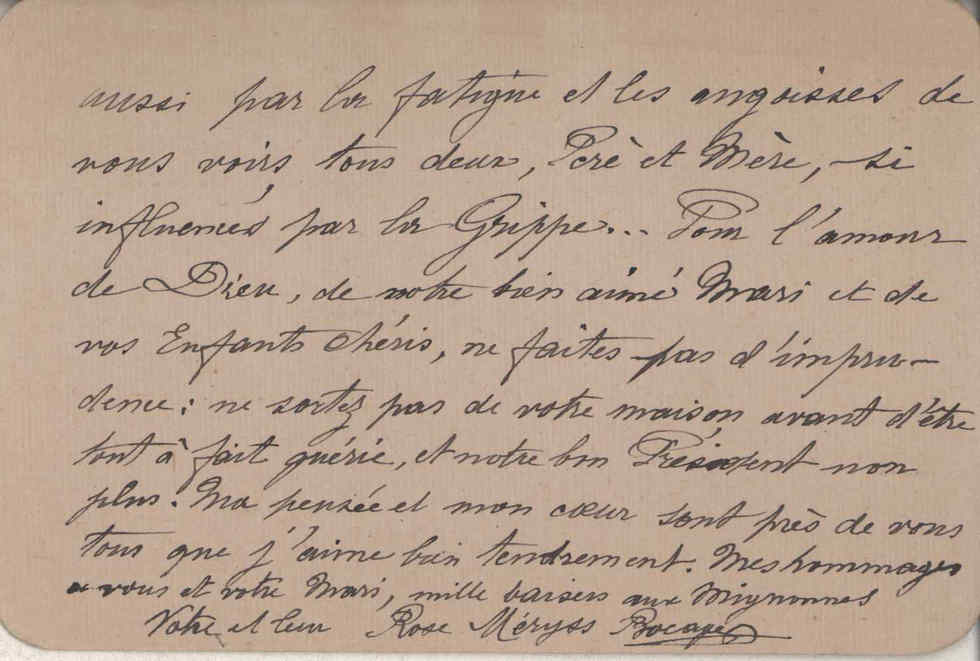 aussi par la fatigue et les angoisses de
vous voirs tous deux, Père et Mère, si
influencés par la Grippe... Pour l'amour
de Dieu, de notre bien aimé Mari et de
vos Enfants chéris, ne faites pas d'impru-
dence: ne sortez pas de votre maison avant d'être
tout à fait guérie, et notre bon Président non
plus. Ma pensée et mon cœur sont près de vous
tous que j'aime bien tendrement. Mes hommages
a vous et votre Mari, mille baisers aux Mignonnes
Votre et leur Rose Méryss Bocage